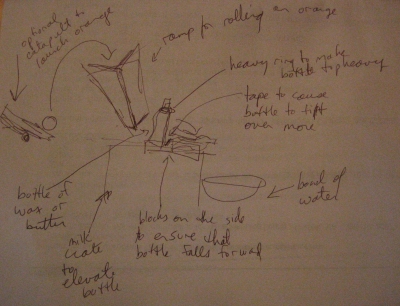 optional
catapult to
launch orange
ramp for rolling an orange
heavy ring to make
bottle top heavy
tape to cause
bottle to tilt
over more
bottle of
wax or
butter
milk
crate
to
elevate
bottle
blocks on the side
to ensure that
bottle falls forward
bowl of
water